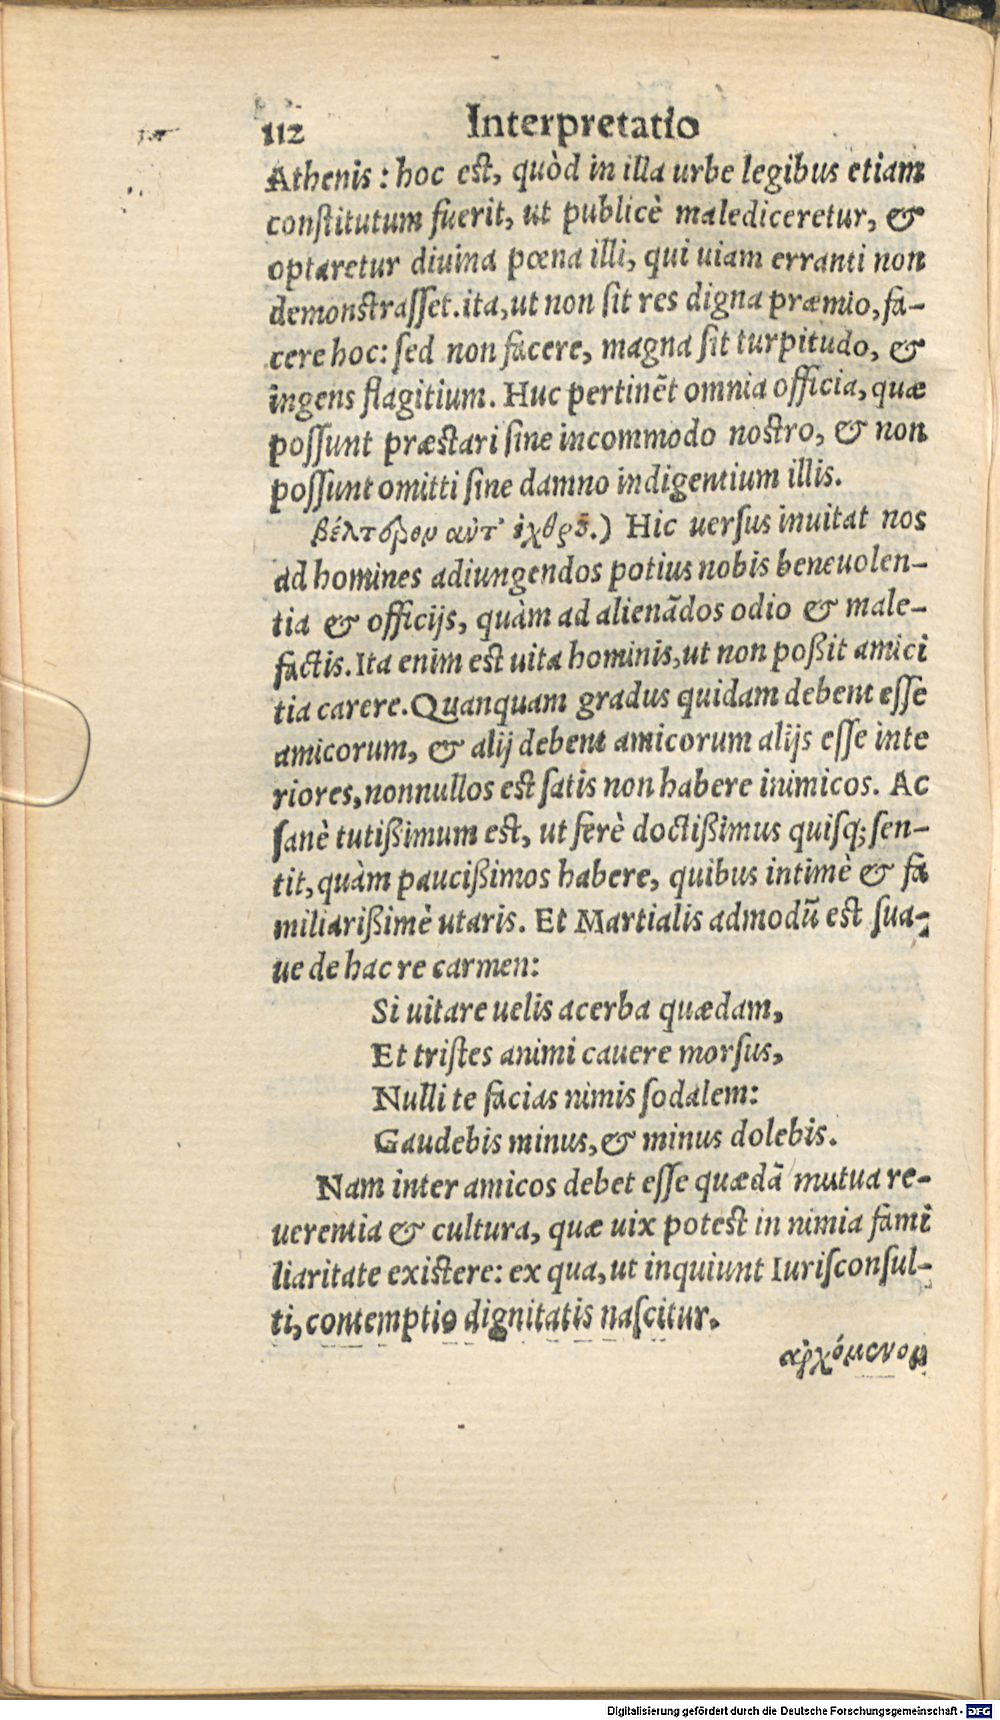 112 Interpretatio
Athenis: hoc est, quòd in illa urbe legibus etiam
constitutum fuerit, ut publicè malediceretur, &
optaretur diuina pœna illi, qui uiam erranti non
demonstrasset. ita, ut non sit res digna præmio, fa-
cere hoc: sed non facere, magna sit turpitudo, &
ingens flagitium. Huc pertinēt omnia officia, quæ
possunt præstari sine incommodo nostro, & non
possunt omitti sine damno indigentium illis.
Hic uersus inuitat nos
ad homines adiungendos potius nobis beneuolen-
tia & officijs, quàm ad alienādos odio & male-
factis. Ita enim est uita hominis, ut non poßit amici
tia carere. Quanquam gradus quidam debent esse
amicorum, & alij debent amicorum alijs esse inte
riores, nonnullos est satis non habere inimicos. Ac
sanè tutißimum est, ut ferè doctißimus quisq; sen-
tit, quàm paucißimos habere, quibus intimè & fa
miliarißimè utaris. Et Martialis admodū est sua-
ue de hac re carmen:
Si uitare uelis acerba quædam,
Et tristes animi cauere morsus,
Nulli te facias nimis sodalem:
Gaudebis minus, & minus dolebis.
Nam inter amicos debet esse quædā mutua re-
uerentia & cultura, quæ uix potest in nimia fami
liaritate existere: ex qua, ut inquiunt Iurisconsul-
ti, contemptio dignitatis nascitur.
ἀρχόμενον
Digitalisierung gefördert durch die Deutsche Forschungsgemeinschaft - DFG